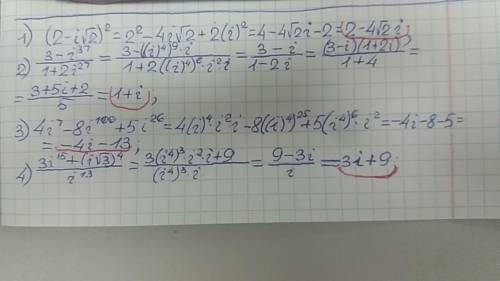 1) (2-i√2)² = 2² - 4i√2 + 2(i)² = 4-4√2i-2 = 2-4√2i
2) (3-i³⁷)/(1+2i²⁷) = (3-((i)⁴)⁹·i)/(1+2((i)⁴)⁶·i²·i) = (3-i)/(1-2i) = ((3-i)(1+2i))/(1+4) =
= (3+5i+2)/5 = 1+i;
3) 4i⁷-8i¹⁰⁰+5i²⁶ = 4(i)⁴·i²·i-8((i)⁴)²⁵+5(i⁴)⁶·i² = -4i-8-5 =
= -4i-13;
4) (3i¹⁵+(i√3)⁴)/i¹³ = (3(i⁴)³·i²·i+9)/((i⁴)³·i) = (9-3i)/i = -3i+9.